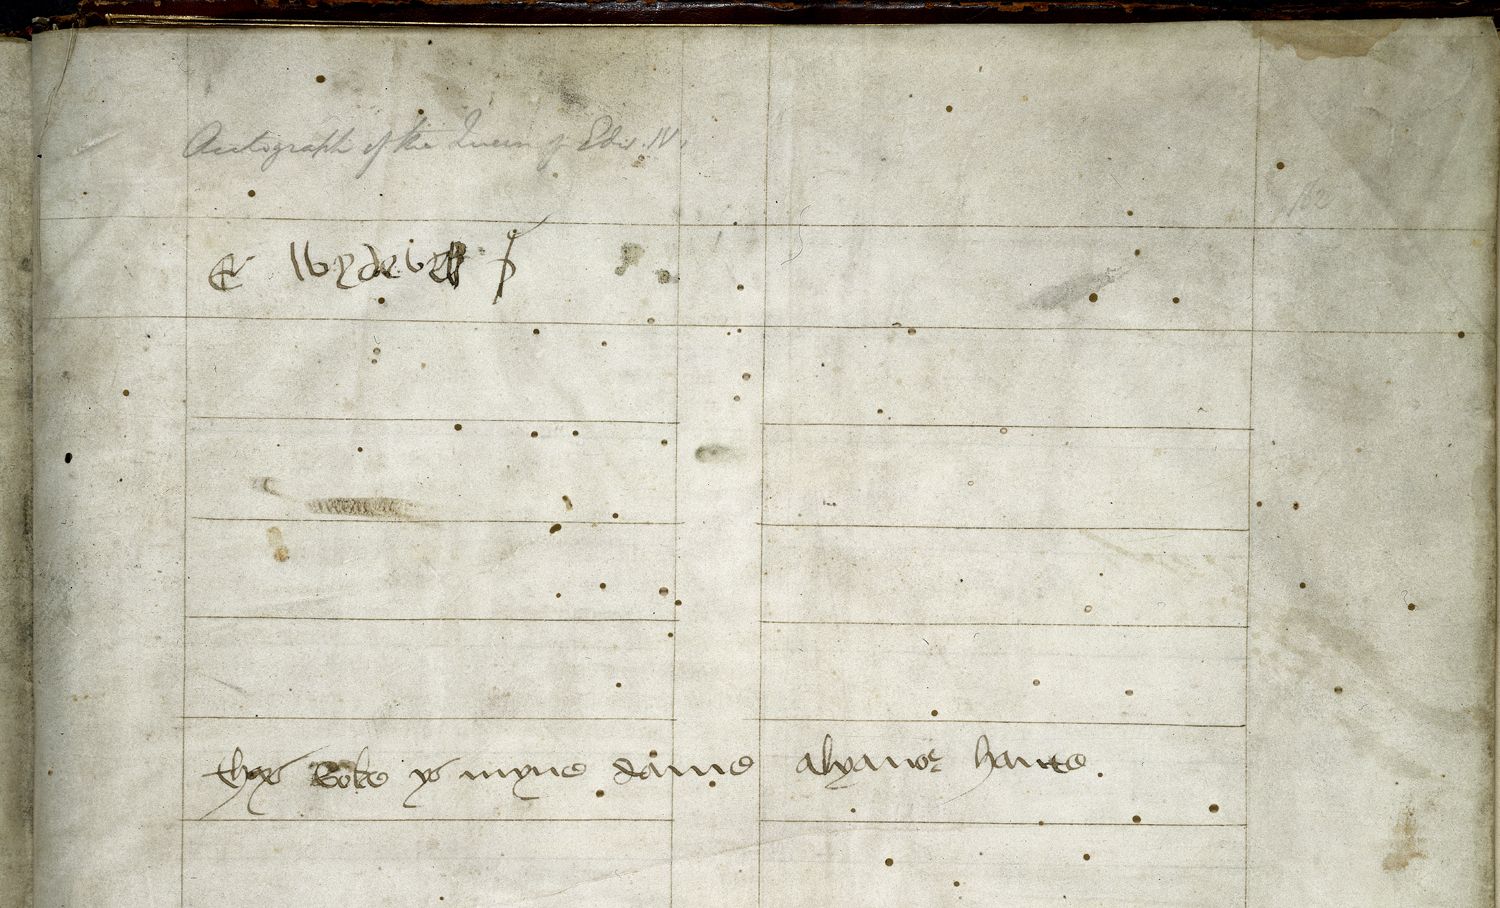 Autograph of the Queen of Edw. IV.
162
E Wydevyll
thys boke ys myne dame alyanor haute.